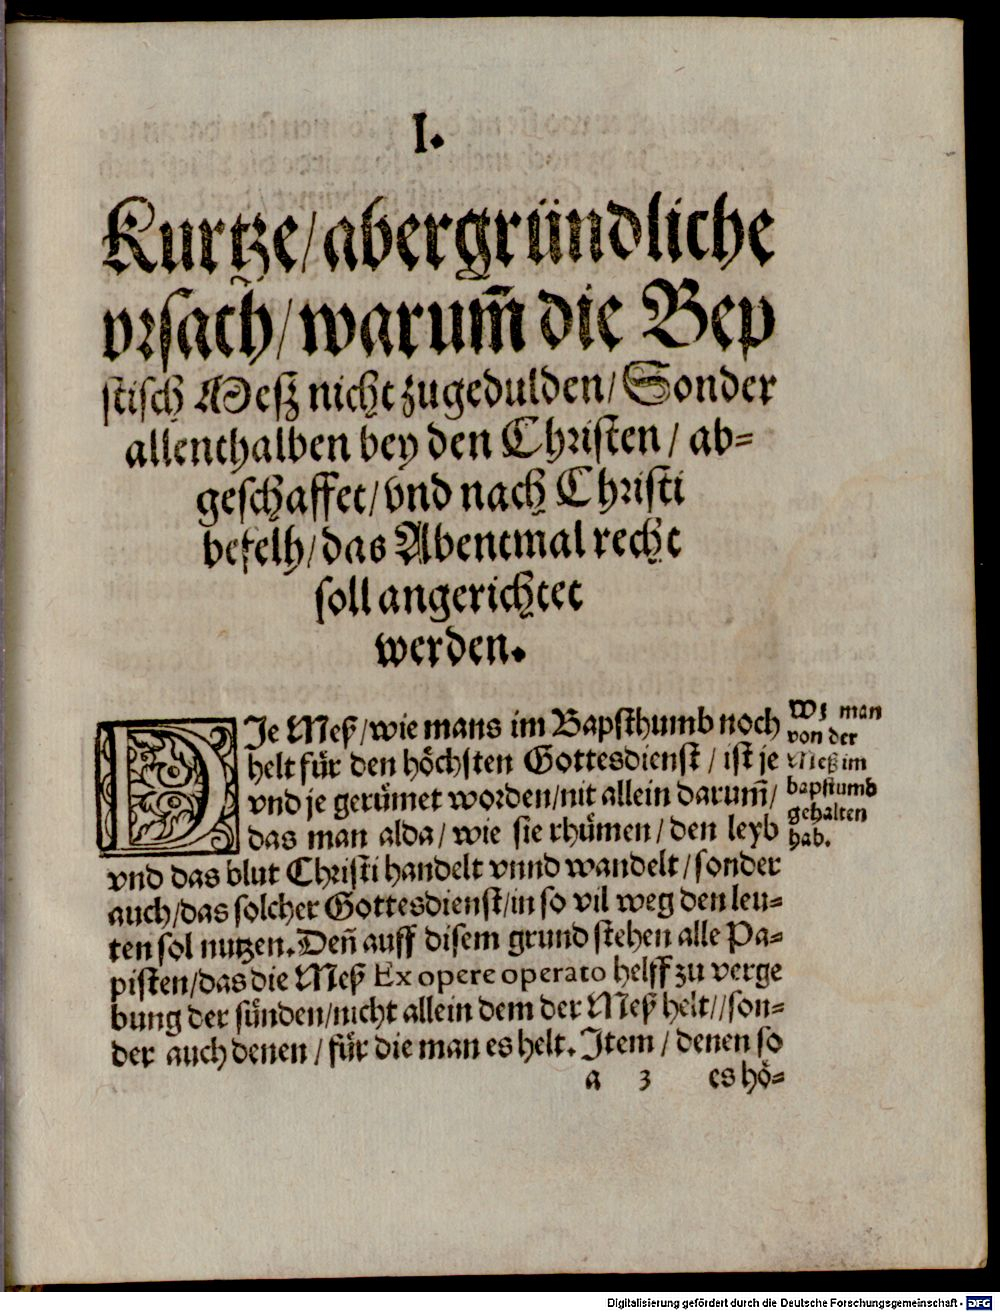 I.
Kurtze/abergründliche
vrsach/warum̃ die Bep
stisch Mesz nicht zugedulden/Sonder
allenthalben bey den Christen / ab=
geschaffet/vnd nach Christi
befelh/das Abentmal recht
soll angerichtet
werden.
DIe Meß/wie mans im Bapsthumb noch
helt für den höchsten Gottesdienst / ist je
vnd je gerümet worden/nit allein darum̃/
das man alda/ wie sie rhümen/ den leyb
vnd das blut Christi handelt vnnd wandelt/sonder
auch/das solcher Gottesdienst/in so vil weg den leu=
ten sol nutzen. Deñ auff disem grund stehen alle Pa=
pisten/das die Meß Ex opere operato helff zu verge
bung der sünden/nicht allein dem der Meß helt//son=
der auch denen / für die man es helt. Item / denen so
Wz man
von der
Meß im
bapstumb
gehalten
hab.
a 3 es hö=
Digitalisierung gefördert durch die Deutsche Forschungsgemeinschaft - DFG